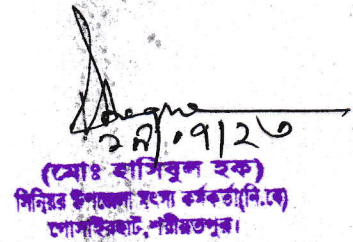 ২৭/০৭/২৩
(মোঃ হাসিবুল হক)
সিনিয়র উপজেলা মৎস্য কর্মকর্তা(নি.বে)
গোসাইরহাট, শরীয়তপুর।